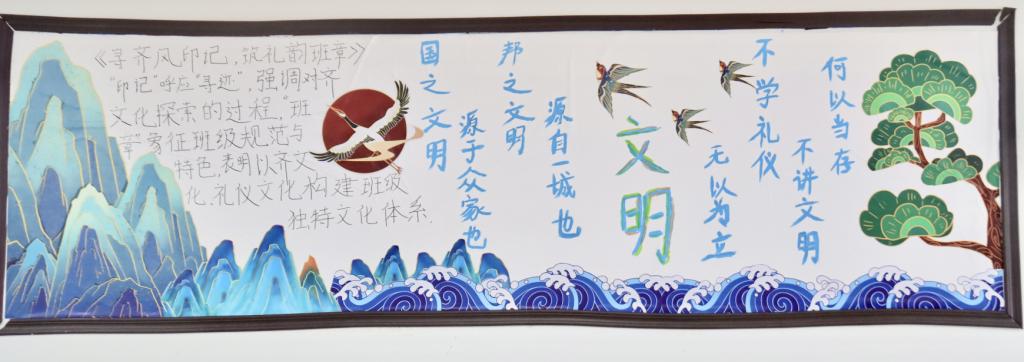 《寻齐风印记,筑礼韵班章》
"印记"呼应"寻迹",强调对齐
文化探索的过程,"班
章"象征班级规范与
特色,表明以齐文
化、礼仪文化构建班级
独特文化体系.
国之文明
源于众家也
邦之文明
源自一城也
文明
不学礼仪
无以为立
何以当存
不讲文明